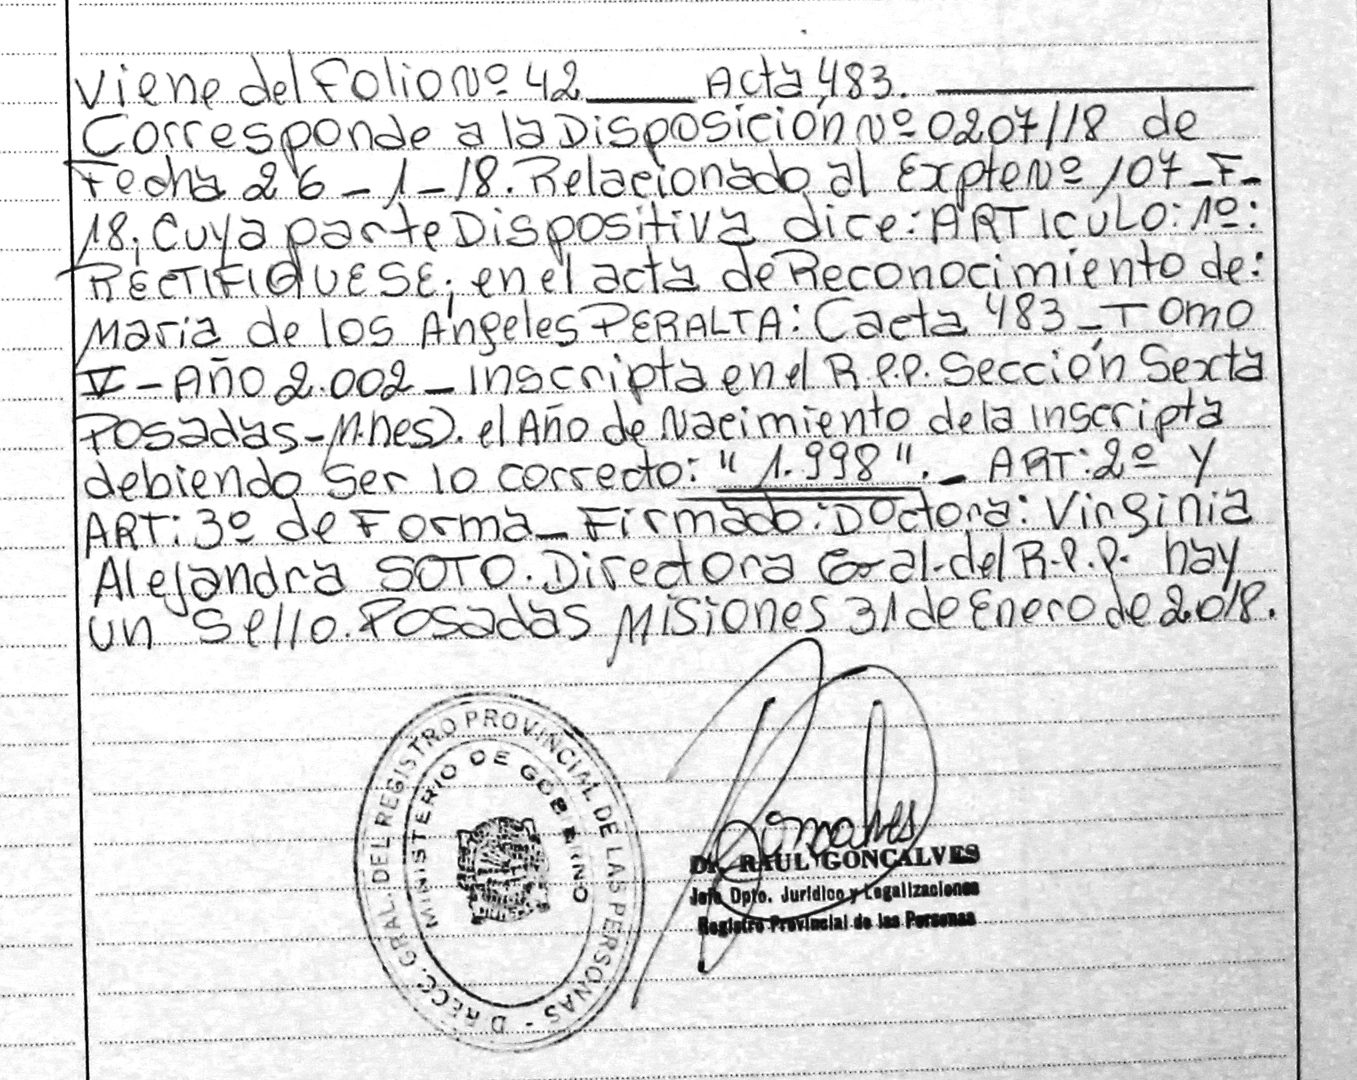 Viene del Folio Nº 42 ____ Acta 483. ________
Corresponde a la Disposición Nº 0207/18 de
Fecha 26-1-18. Relacionado al Expte Nº 107-F-
18, Cuya parte Dispositiva dice: ARTICULO: 1º:
RECTIFIQUESE; en el acta de Reconocimiento de:
Maria de los Angeles PERALTA: (acta 483_Tomo
V-AÑO 2.002_Inscripta en el R.P.P. Sección Sexta
Posadas-M.nes). el Año de Nacimiento de la inscripta
debiendo Ser lo correcto: "1.998"._ ART: 2º Y
ART: 3º de Forma_ Firmado: Doctora: Virginia
Alejandra SOTO. Directora Gral. del R.P.P. hay
un Sello. Posadas Misiones 31 de Enero de 2.018.
DIRECC. GRAL. DEL REGISTRO PROVINCIAL DE LAS PERSONAS -
MINISTERIO DE GOBIERNO
Goncalves
Dr. RAUL GONCALVES
Jefe Dpto. Jurídico y Legalizaciones
Registro Provincial de las Personas